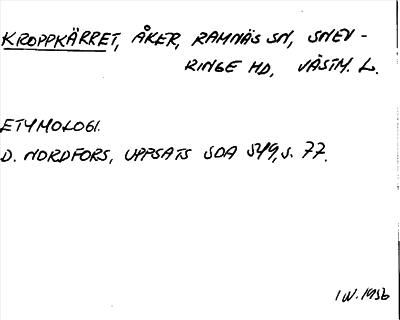 KROPPKÄRRET, ÅKER, RAMNÄS SN, SNEV-
RINGE HD, VÄSTM. L.
ETYMOLOGI.
D. NORDFORS, UPPSATS SDA 549, S. 77.
IW. 1956